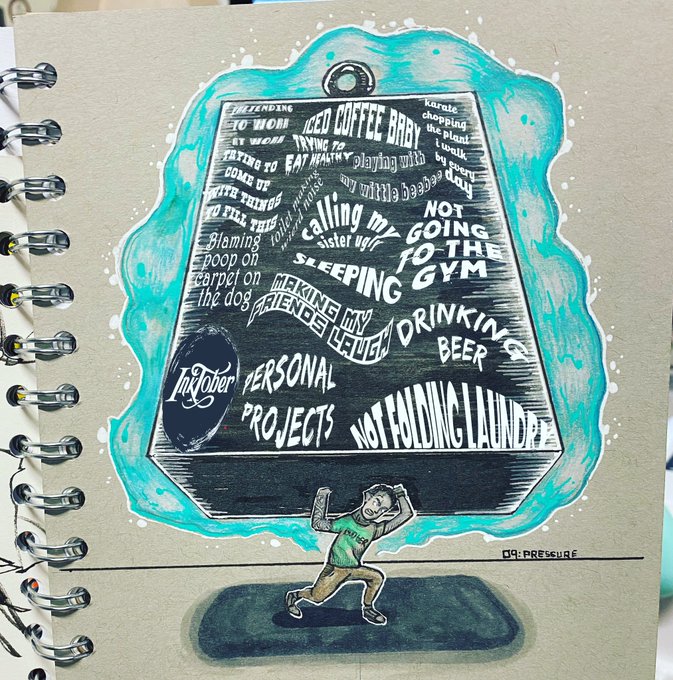 PRETENDING
TO WORK
AT WORK
ICED COFFEE BABY
karate
chopping
the plant
i walk
by every
day
TRYING TO
EAT HEALTHY
playing with
my wittle beebee
TRYING TO
COME UP
WITH THINGS
TO FILL THIS
toilet making
weird noise
calling my
sister ugly
NOT
GOING
TO THE
GYM
Blaming
poop on
carpet on
the dog
SLEEPING
MAKING MY
FRIENDS LAUGH
DRINKING
BEER
InkTober
PERSONAL
PROJECTS
NOT FOLDING LAUNDRY
09: PRESSURE